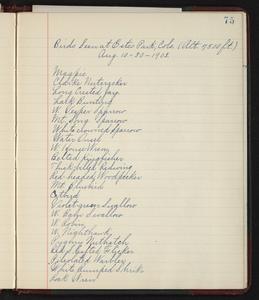 75
Birds Seen at Estes Park, Colo (Alt. 7500 ft.)
Aug. 10-30-1902
Magpie
Clarke Nutcracker
Long Crested Jay
Lark Bunting
W. Vesper Sparrow
Mt. Song Sparrow
White crowned Sparrow
Water Ousel
W. House Wren
Belted Kingfisher
Thick-billed Redwing
Red-headed Woodpecker
Mt. Bluebird
Catbird
Violet-green Swallow
W. Barn Swallow
W. Robin
W. Nighthawk
Pygmy Nuthatch
Red Shafted Flicker
Pileolated Warbler
White Rumped Shrike
Rock Wren